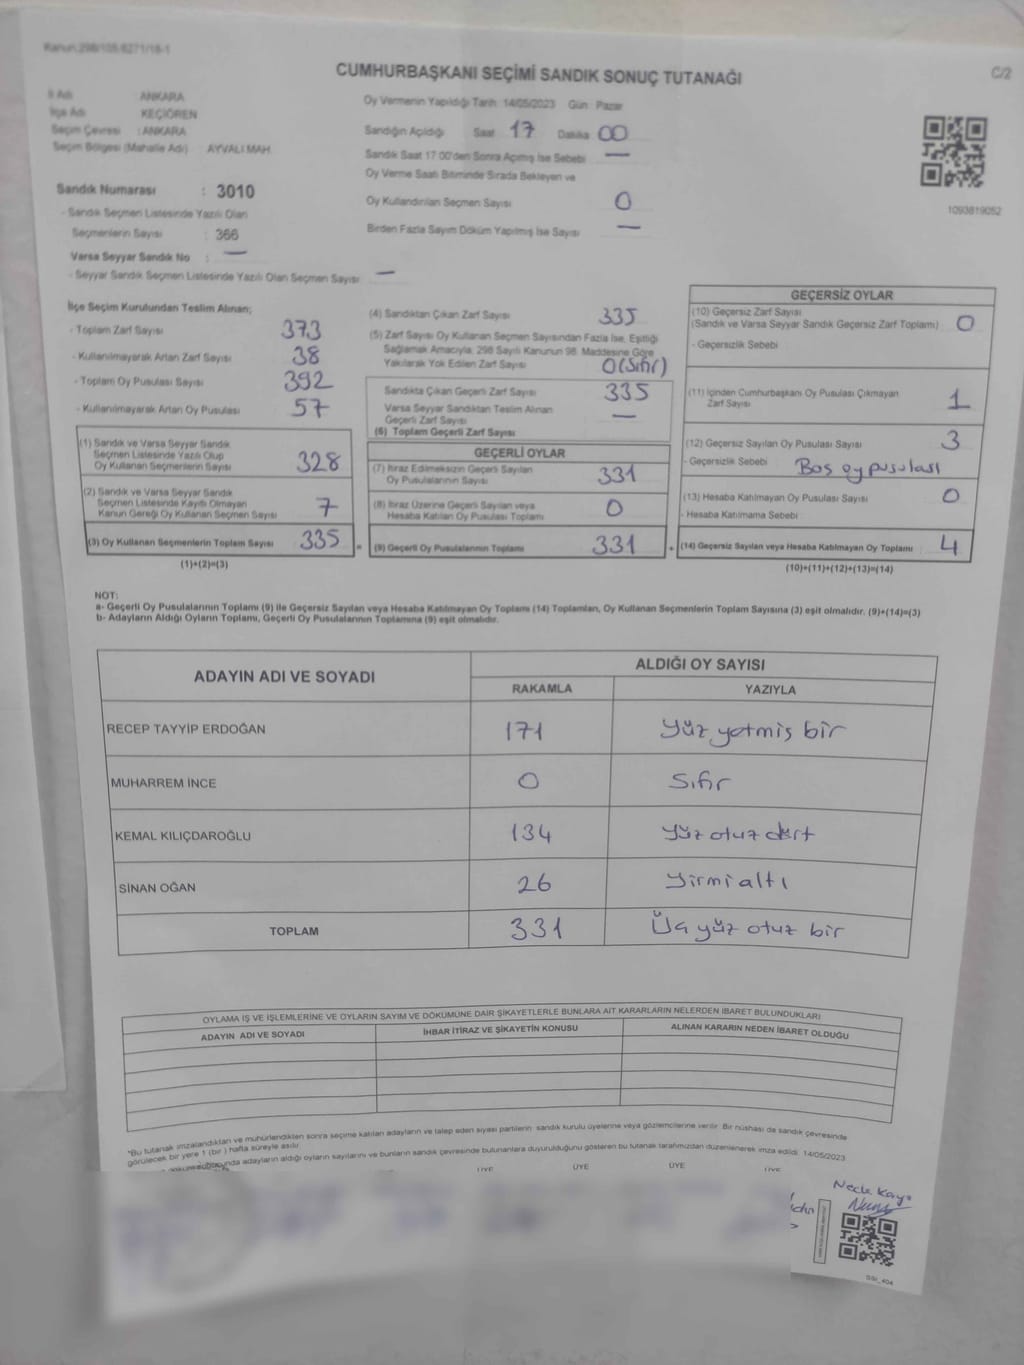 Kanun:298/105;6271/16-1
C/2
CUMHURBAŞKANI SEÇİMİ SANDIK SONUÇ TUTANAĞI
İl Adı : ANKARA
İlçe Adı : KEÇİÖREN
Seçim Çevresi : ANKARA
Seçim Bölgesi (Mahalle Adı) : AYVALI MAH.
Sandık Numarası : 3010
- Sandık Seçmen Listesinde Yazılı Olan
Seçmenlerin Sayısı : 366
Varsa Seyyar Sandık No : —
- Seyyar Sandık Seçmen Listesinde Yazılı Olan Seçmen Sayısı : —
Oy Vermenin Yapıldığı Tarih: 14/05/2023 Gün: Pazar
Sandığın Açıldığı Saat 17 Dakika 00
Sandık Saat 17:00'den Sonra Açılmış İse Sebebi —
Oy Verme Saati Bitiminde Sırada Bekleyen ve
Oy Kullandırılan Seçmen Sayısı 0
Birden Fazla Sayım Döküm Yapılmış İse Sayısı —
1093819052
İlçe Seçim Kurulundan Teslim Alınan;
- Toplam Zarf Sayısı 373
- Kullanılmayarak Artan Zarf Sayısı 38
- Toplam Oy Pusulası Sayısı 392
- Kullanılmayarak Artan Oy Pusulası 57
(1) Sandık ve Varsa Seyyar Sandık
Seçmen Listesinde Yazılı Olup
Oy Kullanan Seçmenlerin Sayısı 328
(2) Sandık ve Varsa Seyyar Sandık
Seçmen Listesinde Kayıtlı Olmayan
Kanun Gereği Oy Kullanan Seçmen Sayısı 7
(3) Oy Kullanan Seçmenlerin Toplam Sayısı 335 =
(1)+(2)=(3)
(4) Sandıktan Çıkan Zarf Sayısı 335
(5) Zarf Sayısı Oy Kullanan Seçmen Sayısından Fazla İse, Eşitliği
Sağlamak Amacıyla; 298 Sayılı Kanunun 98. Maddesine Göre
Yakılarak Yok Edilen Zarf Sayısı 0(Sıfır)
Sandıkta Çıkan Geçerli Zarf Sayısı 335
Varsa Seyyar Sandıktan Teslim Alınan
Geçerli Zarf Sayısı —
(6) Toplam Geçerli Zarf Sayısı
GEÇERLİ OYLAR
(7) İtiraz Edilmeksizin Geçerli Sayılan
Oy Pusulalarının Sayısı 331
(8) İtiraz Üzerine Geçerli Sayılan veya
Hesaba Katılan Oy Pusulası Toplamı 0
(9) Geçerli Oy Pusulalarının Toplamı 331 +
GEÇERSİZ OYLAR
(10) Geçersiz Zarf Sayısı
(Sandık ve Varsa Seyyar Sandık Geçersiz Zarf Toplamı) 0
- Geçersizlik Sebebi
(11) İçinden Cumhurbaşkanı Oy Pusulası Çıkmayan
Zarf Sayısı 1
(12) Geçersiz Sayılan Oy Pusulası Sayısı 3
- Geçersizlik Sebebi Boş oy pusulası
(13) Hesaba Katılmayan Oy Pusulası Sayısı 0
- Hesaba Katılmama Sebebi
(14) Geçersiz Sayılan veya Hesaba Katılmayan Oy Toplamı 4
(10)+(11)+(12)+(13)=(14)
NOT:
a- Geçerli Oy Pusulalarının Toplamı (9) ile Geçersiz Sayılan veya Hesaba Katılmayan Oy Toplamı (14) Toplamları, Oy Kullanan Seçmenlerin Toplam Sayısına (3) eşit olmalıdır. (9)+(14)=(3)
b- Adayların Aldığı Oyların Toplamı, Geçerli Oy Pusulalarının Toplamına (9) eşit olmalıdır.
ADAYIN ADI VE SOYADI ALDIĞI OY SAYISI
RAKAMLA YAZIYLA
RECEP TAYYİP ERDOĞAN 171 Yüz yetmiş bir
MUHARREM İNCE 0 Sıfır
KEMAL KILIÇDAROĞLU 134 Yüz otuz dört
SİNAN OĞAN 26 Yirmi altı
TOPLAM 331 Üç yüz otuz bir
OYLAMA İŞ VE İŞLEMLERİNE VE OYLARIN SAYIM VE DÖKÜMÜNE DAİR ŞİKAYETLERLE BUNLARA AİT KARARLARIN NELERDEN İBARET BULUNDUKLARI
ADAYIN ADI VE SOYADI İHBAR İTİRAZ VE ŞİKAYETİN KONUSU ALINAN KARARIN NEDEN İBARET OLDUĞU
*Bu tutanak imzalandıktan ve mühürlendikten sonra seçime katılan adayların ve talep eden siyasi partilerin sandık kurulu üyelerine veya gözlemcilerine verilir. Bir nüshası da sandık çevresinde
görülecek bir yere 1 (bir) hafta süreyle asılır.
adayların aldığı oyların sayılarını ve bunların sandık çevresinde bulunanlara duyurulduğunu gösteren bu tutanak tarafımızdan düzenlenerek imza edildi. 14/05/2023
ÜYE ÜYE ÜYE ÜYE